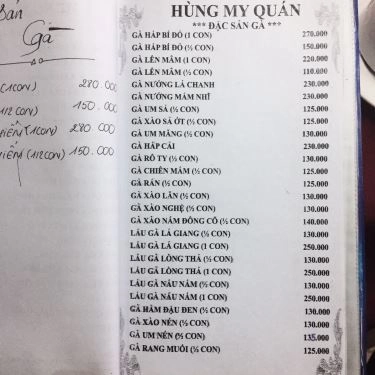 Sản
Gà
(1CON) 280.000
1/2CON) 150.000
HIỂM(1CON) 280.000
HIỂM(1/2CON) 150.000
HÙNG MY QUÁN
*** ĐẶC SẢN GÀ ***
GÀ HẤP BÍ ĐỎ (1 CON) 270.000
GÀ HẤP BÍ ĐỎ (½ CON) 150.000
GÀ LÊN MÂM (1 CON) 220.000
GÀ LÊN MÂM (½ CON) 110.000
GÀ NƯỚNG LÁ CHANH 230.000
GÀ NƯỚNG MẮM NHĨ 230.000
GÀ UM SẢ (½ CON) 125.000
GÀ XÀO SẢ ỚT (½ CON) 125.000
GÀ UM MĂNG (½ CON) 130.000
GÀ HẤP CẢI 230.000
GÀ RÔ TY (½ CON) 130.000
GÀ CHIÊN MẮM (½ CON) 125.000
GÀ RÁN (½ CON) 125.000
GÀ XÀO LĂN (½ CON) 130.000
GÀ XÀO NGHỆ (½ CON) 130.000
GÀ XÀO NẤM ĐÔNG CÔ (½ CON) 140.000
LẨU GÀ LÁ GIANG (½ CON) 130.000
LẨU GÀ LÁ GIANG (1 CON) 250.000
LẨU GÀ LÒNG THẢ (½ CON) 130.000
LẨU GÀ LÒNG THẢ (1 CON) 250.000
LẨU GÀ NẤU NẤM (½ CON) 130.000
LẨU GÀ NẤU NẤM (1 CON) 250.000
GÀ HẦM ĐẬU ĐEN (½ CON) 130.000
GÀ XÀO NÉN (½ CON) 130.000
GÀ UM NÉN (½ CON) 135.000
GÀ RANG MUỐI (½ CON) 125.000